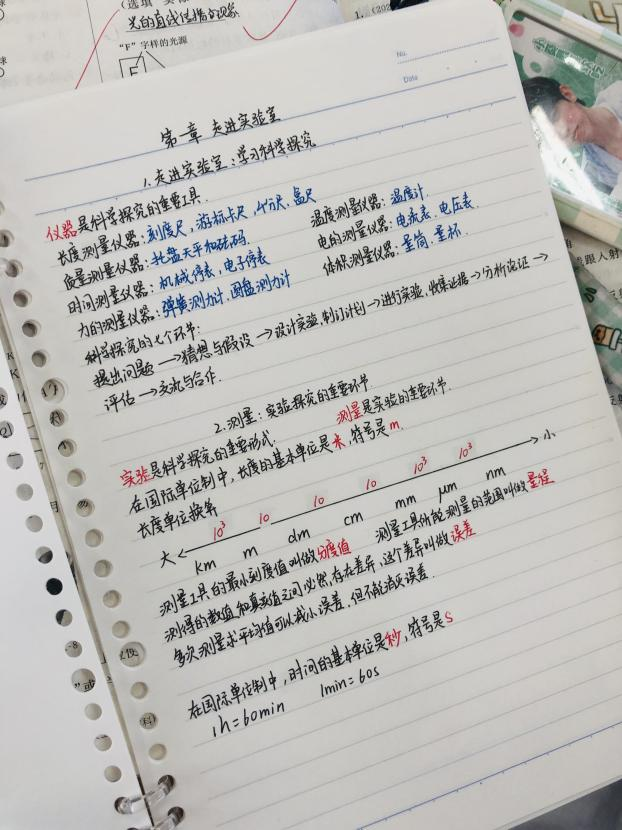 (选填 实际
光的直线传播的现象
"F"字样的光源
F
1. (202
No.
Date
第一章 走进实验室
1. 走进实验室:学习科学探究
仪器是科学探究的重要工具.
长度测量仪器:刻度尺, 游标卡尺, 千分尺, 卷尺 温度测量仪器:温度计
质量测量仪器:托盘天平和砝码 电的测量仪器:电流表. 电压表.
时间测量仪器:机械停表, 电子停表 体积测量仪器:量筒. 量杯.
力的测量仪器:弹簧测力计. 圆盘测力计
科学探究的七个环节:
提出问题→猜想与假设→设计实验, 制订计划→进行实验, 收集证据→分析论证→
评估→交流与合作.
2. 测量:实验探究的重要环节
实验是科学探究的重要形式. 测量是实验的重要环节.
在国际单位制中, 长度的基本单位是米, 符号是m.
长度单位换算
10³ 10 10 10 10³ 10³
大 ← → 小
km m dm cm mm μm nm
测量工具的最小刻度值叫做分度值 测量工具所能测量的范围叫做量程
测得的数值和真实值之间必然存在差异, 这个差异叫做误差
多次测量求平均值可以减小误差, 但不能消灭误差.
在国际单位制中, 时间的基本单位是秒, 符号是s
1h=60min 1min=60s